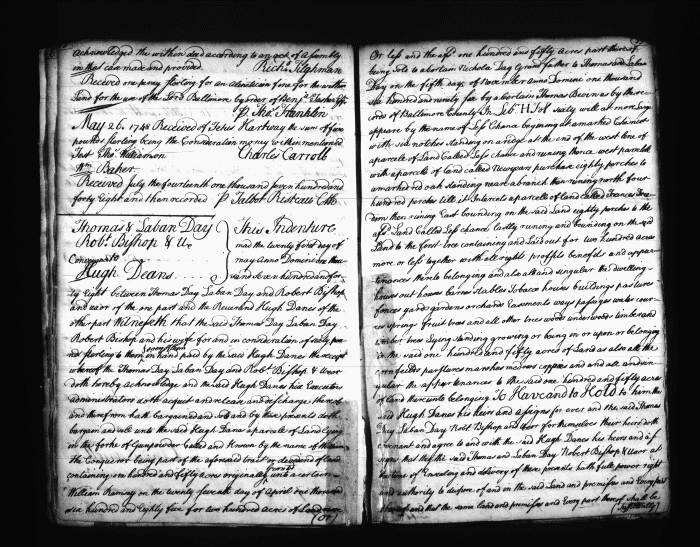 Acknowledged the within deed according to an act of Assembly
in that case made and provided Richd Tilghman
Received one penny sterling for an alienation fine for the within
Land for the use of the Lord Baltimore by order of Benja Tasker Esqr
p Tho: Franklin
May 26. 1748 Received of Hartway the sum of five
pounds sterling being the Consideration money within mentioned
Test Tho: Charles Carroll
Wm Baker
Received July the fourteenth one thousand seven hundred and
forty Eight and then recorded p Talbot Risteau Clk
Thomas & Laban Day
Robt Bishop & Ux
Conveyance to
Hugh Deans
This Indenture
made the twenty first day of
may Anno Domini one thou
sand seven hundred and for
ty Eight between Thomas Day Laban Day and Robert Bishop
and uxor of the one part and the Reverend Hugh Danes of the
other part Witneseth that the said Thomas Day Laban Day
Robert Bishop and his wife for and in consideration of sixty pou
nd sterling to them in hand paid by the said Hugh Danes the receipt
whereof the Thomas Day Laban Day and Robt Bishop & Uxor
doth hereby acknowledge and the said Hugh Danes his Executors
administrators doth acquit and release and discharge thereof
and therefrom hath bargained and sold and by these presents doth
bargain and sell unto the said Hugh Danes a parcele of Land Lying
in the forks of Gunpowder called and known by the name of William
the Conqueror being part of the aforesaid tract or dividend of land
containing one hundred and fifty acres originally granted unto a certain
William Ramsey on the twenty seventh day of April one thousand
six hundred and Eighty five for two hundred acres of Land more
(Or)
Or less and the afd one hundred and fifty acres part thereof
being sold to abortain Nicholas Day Grand father to Thomas and Laban
Day on the fifth day of November Anno Domini one thousand
six hundred and ninety five by a bortain Thomas Bevens as by the re
cords of Baltimore County In Leb: H. fol: sixty will at more Large
appear by the name of Less Chance begining at a marked Chesnut
with six notches standing on a ridge at the end of the west line of
a parcele of Land Called Less chance and runing thence west parralell
with a parcele of land called Newyears purchase Eighty porches to
a marked red oak standing near a branch then runing north four
hundred porches till it Intersects a parcele of land called Frances free
dom then runing East bounding on the said Land eighty porches to the
afd Land Called Less chance lastly runing and bounding on the said
Land to the first tree containing and Laid out for two hundred acres
more or less together with all right profitts benefits and appur
tenances thereto belonging and also all and singular the dwelling
houses out houses barnes stables Tobaco houses buildings pastures
fences gards gardens orchards Easments ways passages water cour
ses springs fruit trees and all other trees woods underwoods timber and
timber trees Lying standing growing or being in or upon or belonging
to the said one hundred and fifty acres of Land as also all the
corn feilds pastures marshes medows coppices and and all and sin
gular the appurtenances to the said one hundred and fifty acres
of land thereunto belonging To Have and to Hold to him the
said Hugh Danes his heirs and assigns for ever and the said Thomas
Day Laban Day Robt Bishop and Uxor for themselves their heirs doth
covenant and agree to and with the said Hugh Danes his heirs and as
signs that they the said Thomas and Laban Day Robert Bishop & Uxor at
the time of Ensealing and delivery of these presents hath full power right
and authority to dispose of and in the said Land and premises and Every part
thereof and that the same Land and premises and Every part thereof shall be
(Lawfully)